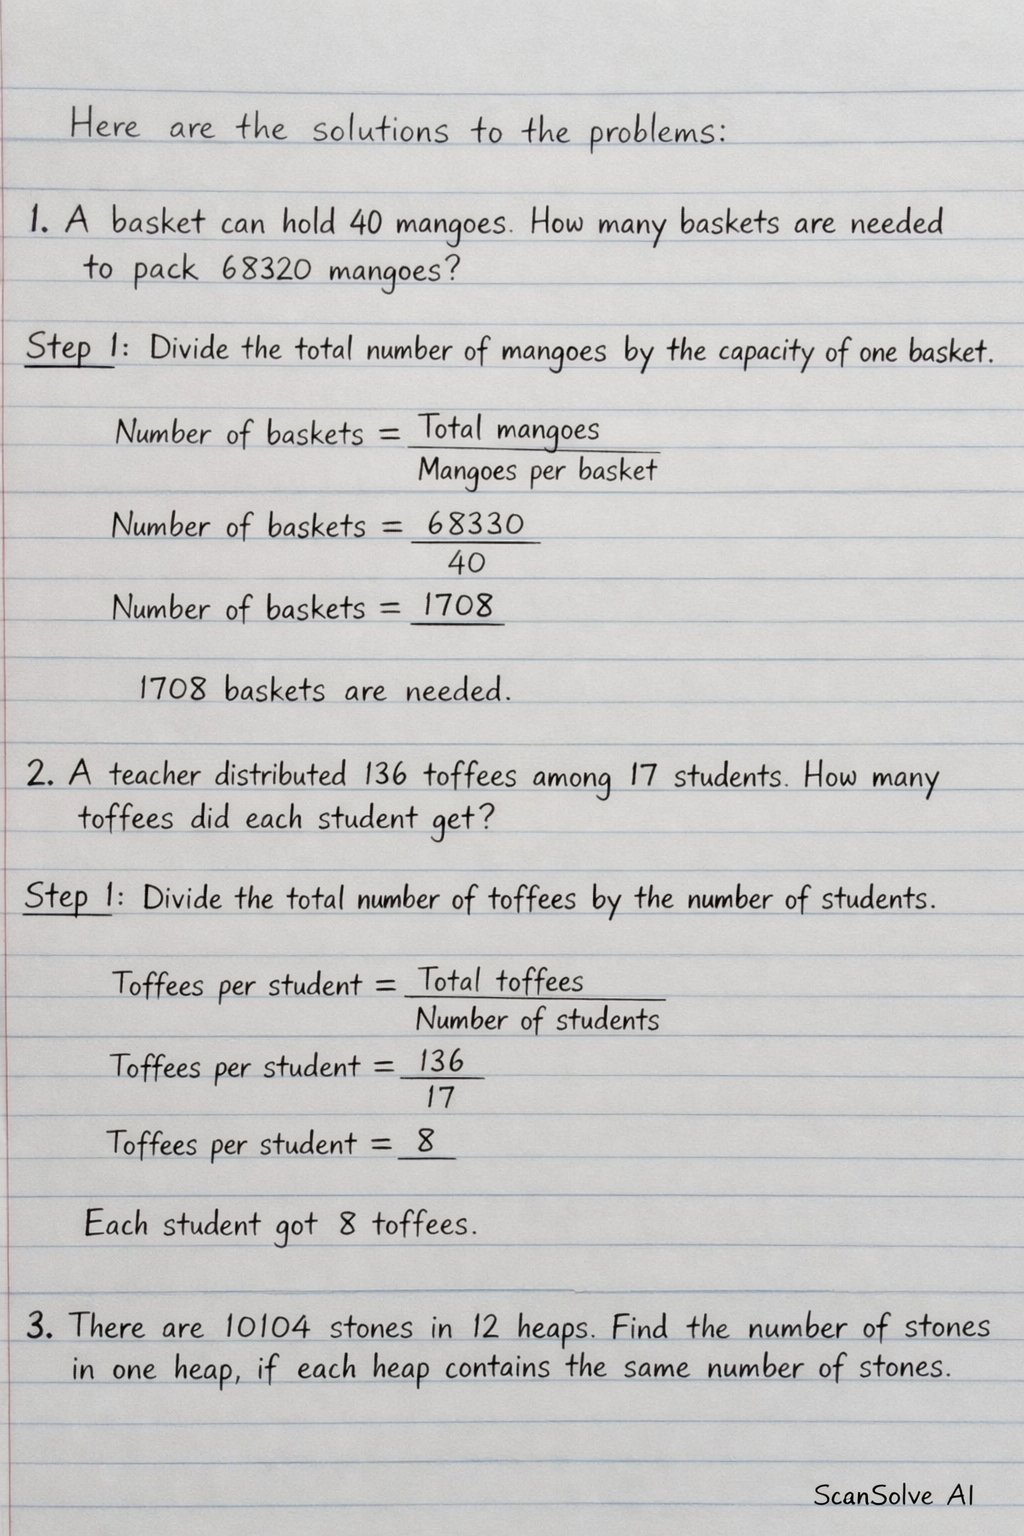 Here are the solutions to the problems:
1. A basket can hold 40 mangoes. How many baskets are needed
to pack 68320 mangoes?
Step 1: Divide the total number of mangoes by the capacity of one basket.
Number of baskets = Total mangoes
Mangoes per basket
Number of baskets = 68330
40
Number of baskets = 1708
1708 baskets are needed.
2. A teacher distributed 136 toffees among 17 students. How many
toffees did each student get?
Step 1: Divide the total number of toffees by the number of students.
Toffees per student = Total toffees
Number of students
Toffees per student = 136
17
Toffees per student = 8
Each student got 8 toffees.
3. There are 10104 stones in 12 heaps. Find the number of stones
in one heap, if each heap contains the same number of stones.
ScanSolve AI